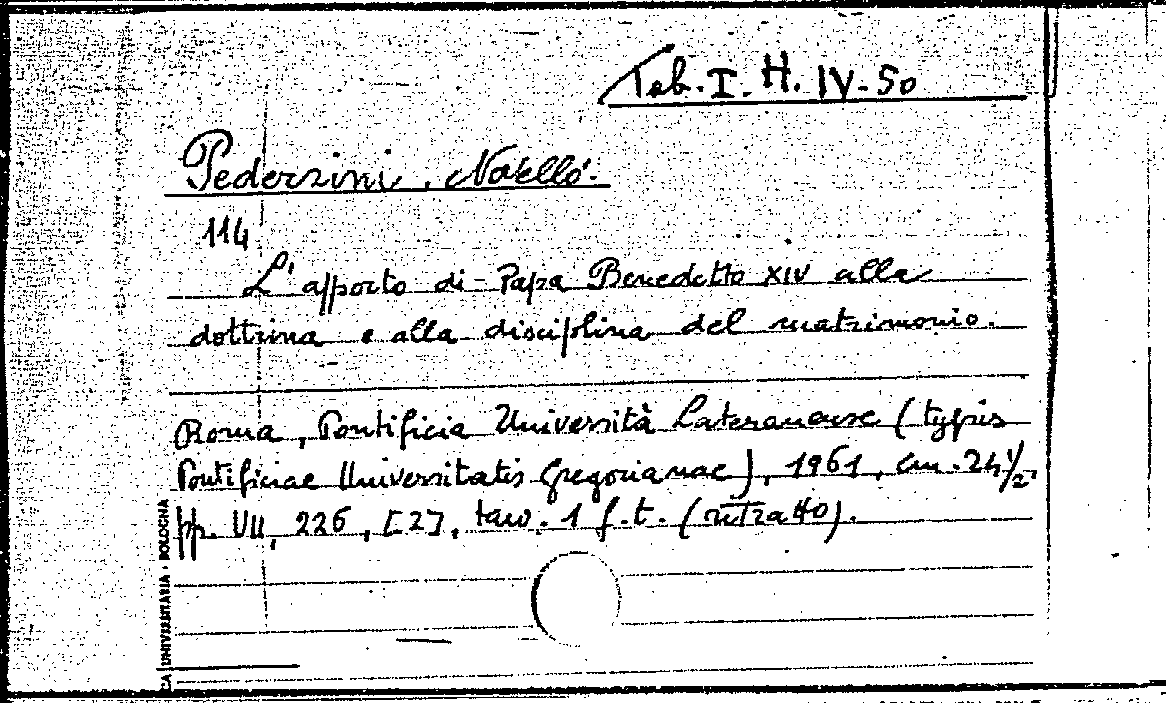 Teb. I. H. IV-50
Pederzini, Novello.
114
L'apporto di Papa Benedetto XIV alla
dottrina e alla disciplina del matrimonio.
Roma, Pontificia Università Lateranense (typis
Pontificiae Universitatis Gregorianae), 1961, cm. 24 1/2.
pp. VII, 226, [2], tav. 1 f. t. (ritratto).
CA UNIVERSITARIA - BOLOGNA